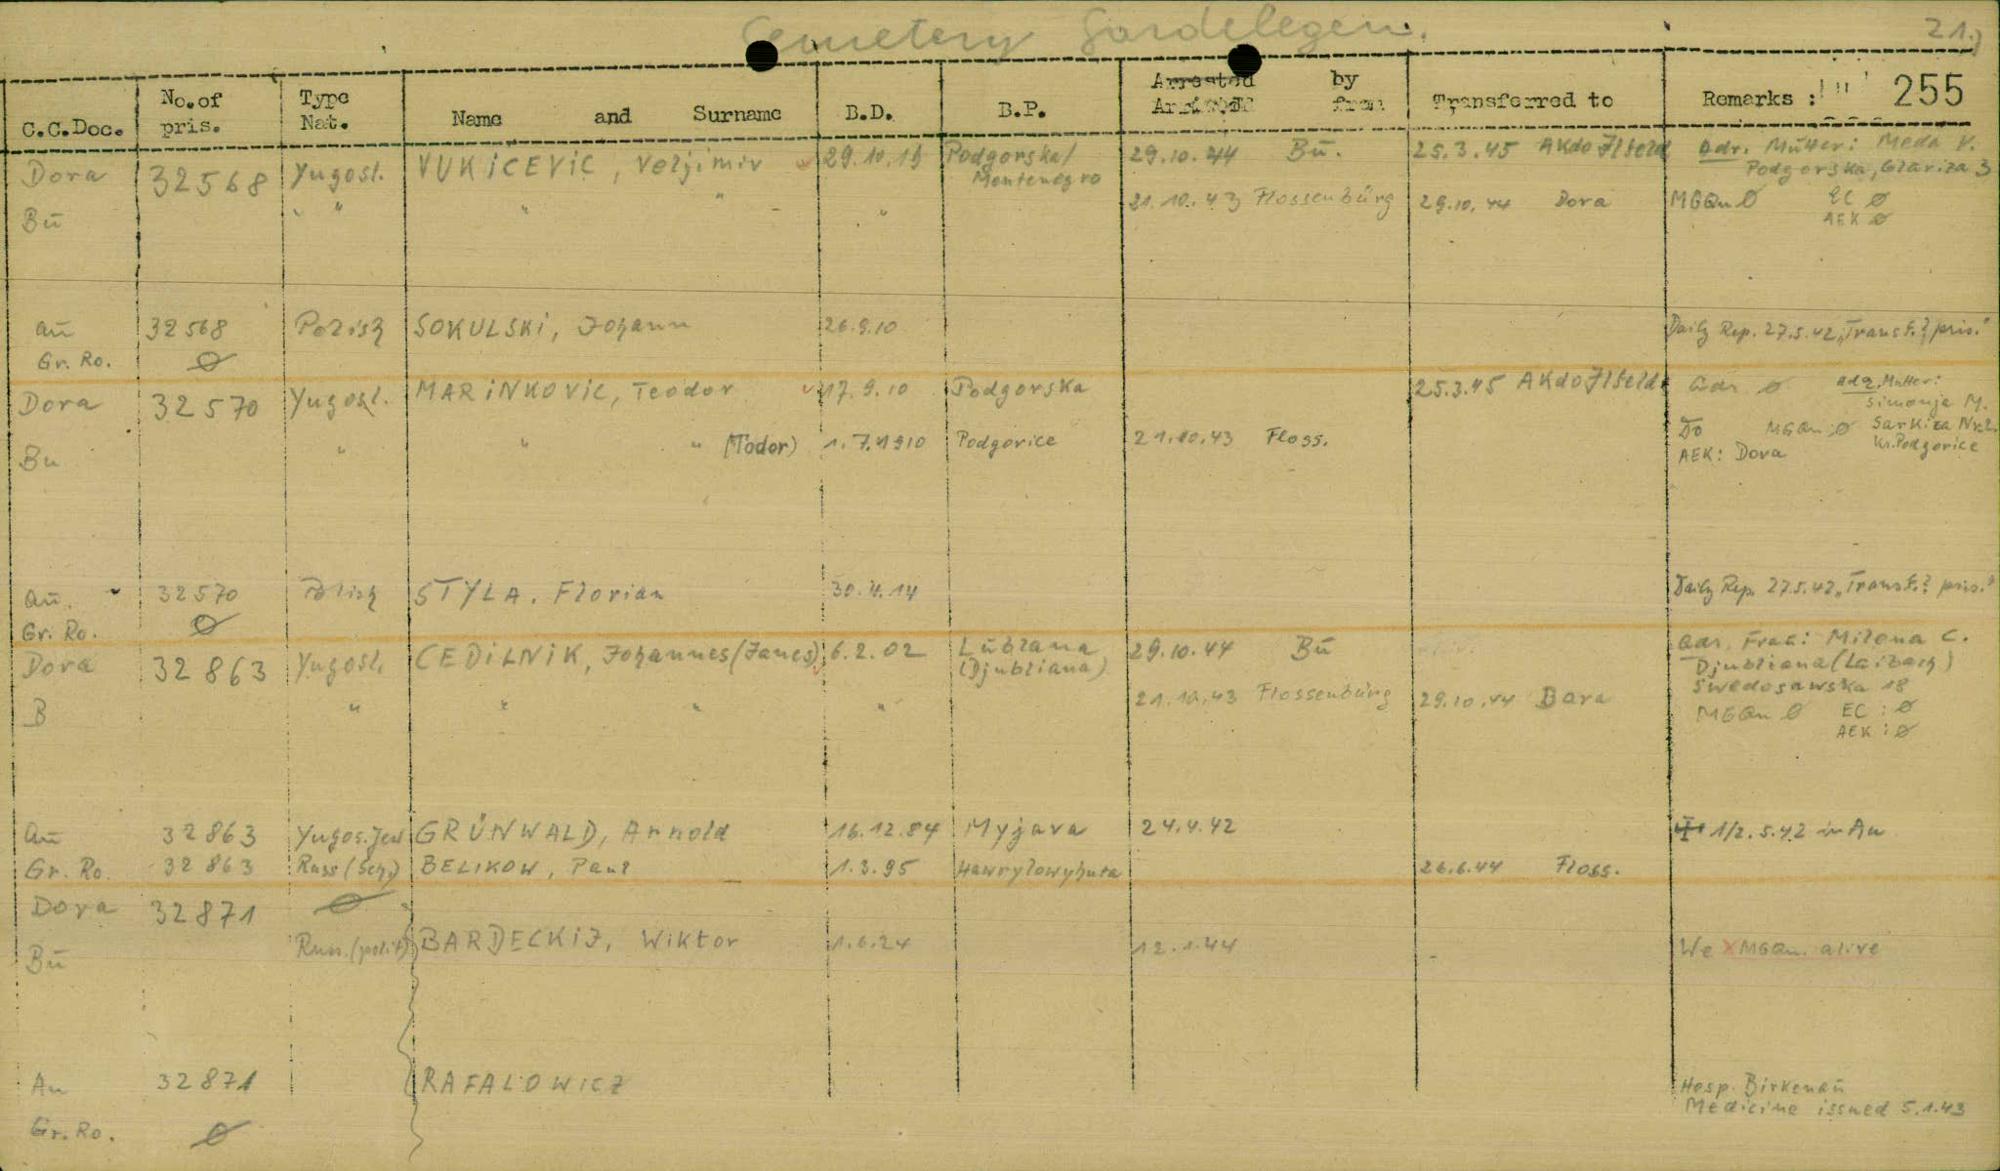 Cemetery Gardelegen. 21.)
C.C.Doc. No.of pris. Type Nat. Name and Surname B.D. B.P. Arrested by Transferred to Remarks : 255
Dora 32568 Yugosl. VUKiCEViC, Veljimir 29.10.19 Podgorska/ Montenegro 29.10.44 Bü. 25.3.45 AKdo Ilfeld adr. Mutter: Meda V.
Podgorska, Glariza 3
Bü " " " " " 21.10.43 Flossenbürg 29.10.44 Dora MGQu Ø EC Ø
AEK Ø
au 32568 Polish SOKULSKi, Johann 26.9.10 Daily Rep. 27.5.42 "Transf. ? pris."
Gr. Ro. Ø
Dora 32570 Yugosl. MARiNKOViC, Teodor 17.9.10 Podgorska 25.3.45 AKdo Ilfeld adr. Ø adr. Mutter:
Simonja M.
Bu " " " (Todor) 1.7.1910 Podgorice 21.10.43 Floss. Do MGQu Ø Sarkiza Nr.2.
AEK: Dora Kr. Podgorice
au. 32570 Polish STYLA. Florian 30.4.14 Daily Rep. 27.5.42 "Transf. ? pris."
Gr. Ro. Ø
Dora 32863 Yugosl. CEDiLNiK, Johannes (Janes) 6.2.02 Lublana (Djubliana) 29.10.44 Bü adr. Frau: Milona C.
Djubliana (Laibach)
Swedosawska 18
B " " " " 21.10.43 Flossenbürg 29.10.44 Dora MGQu Ø EC : Ø
AEK : Ø
au 32863 Yugos. Jew GRÜNWALD, Arnold 16.12.84 Myjava 24.4.42 1/2.5.42 in Au
Gr. Ro. 32863 Russ (Sch.) BELIKOW, Paul 1.3.95 Hawrylowyhuta 26.6.44 Floss.
Dora 32871 Ø
Bü Russ. (polit) BARDECKiJ, Wiktor 1.6.24 12.1.44 We X MGQu. alive
Au 32871 RAFALOWICZ Hosp. Birkenau
Medicine issued 5.1.43
Gr. Ro. Ø